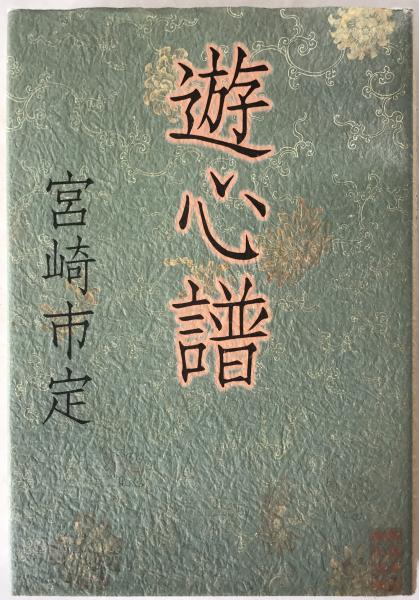 遊心譜
宮崎市定